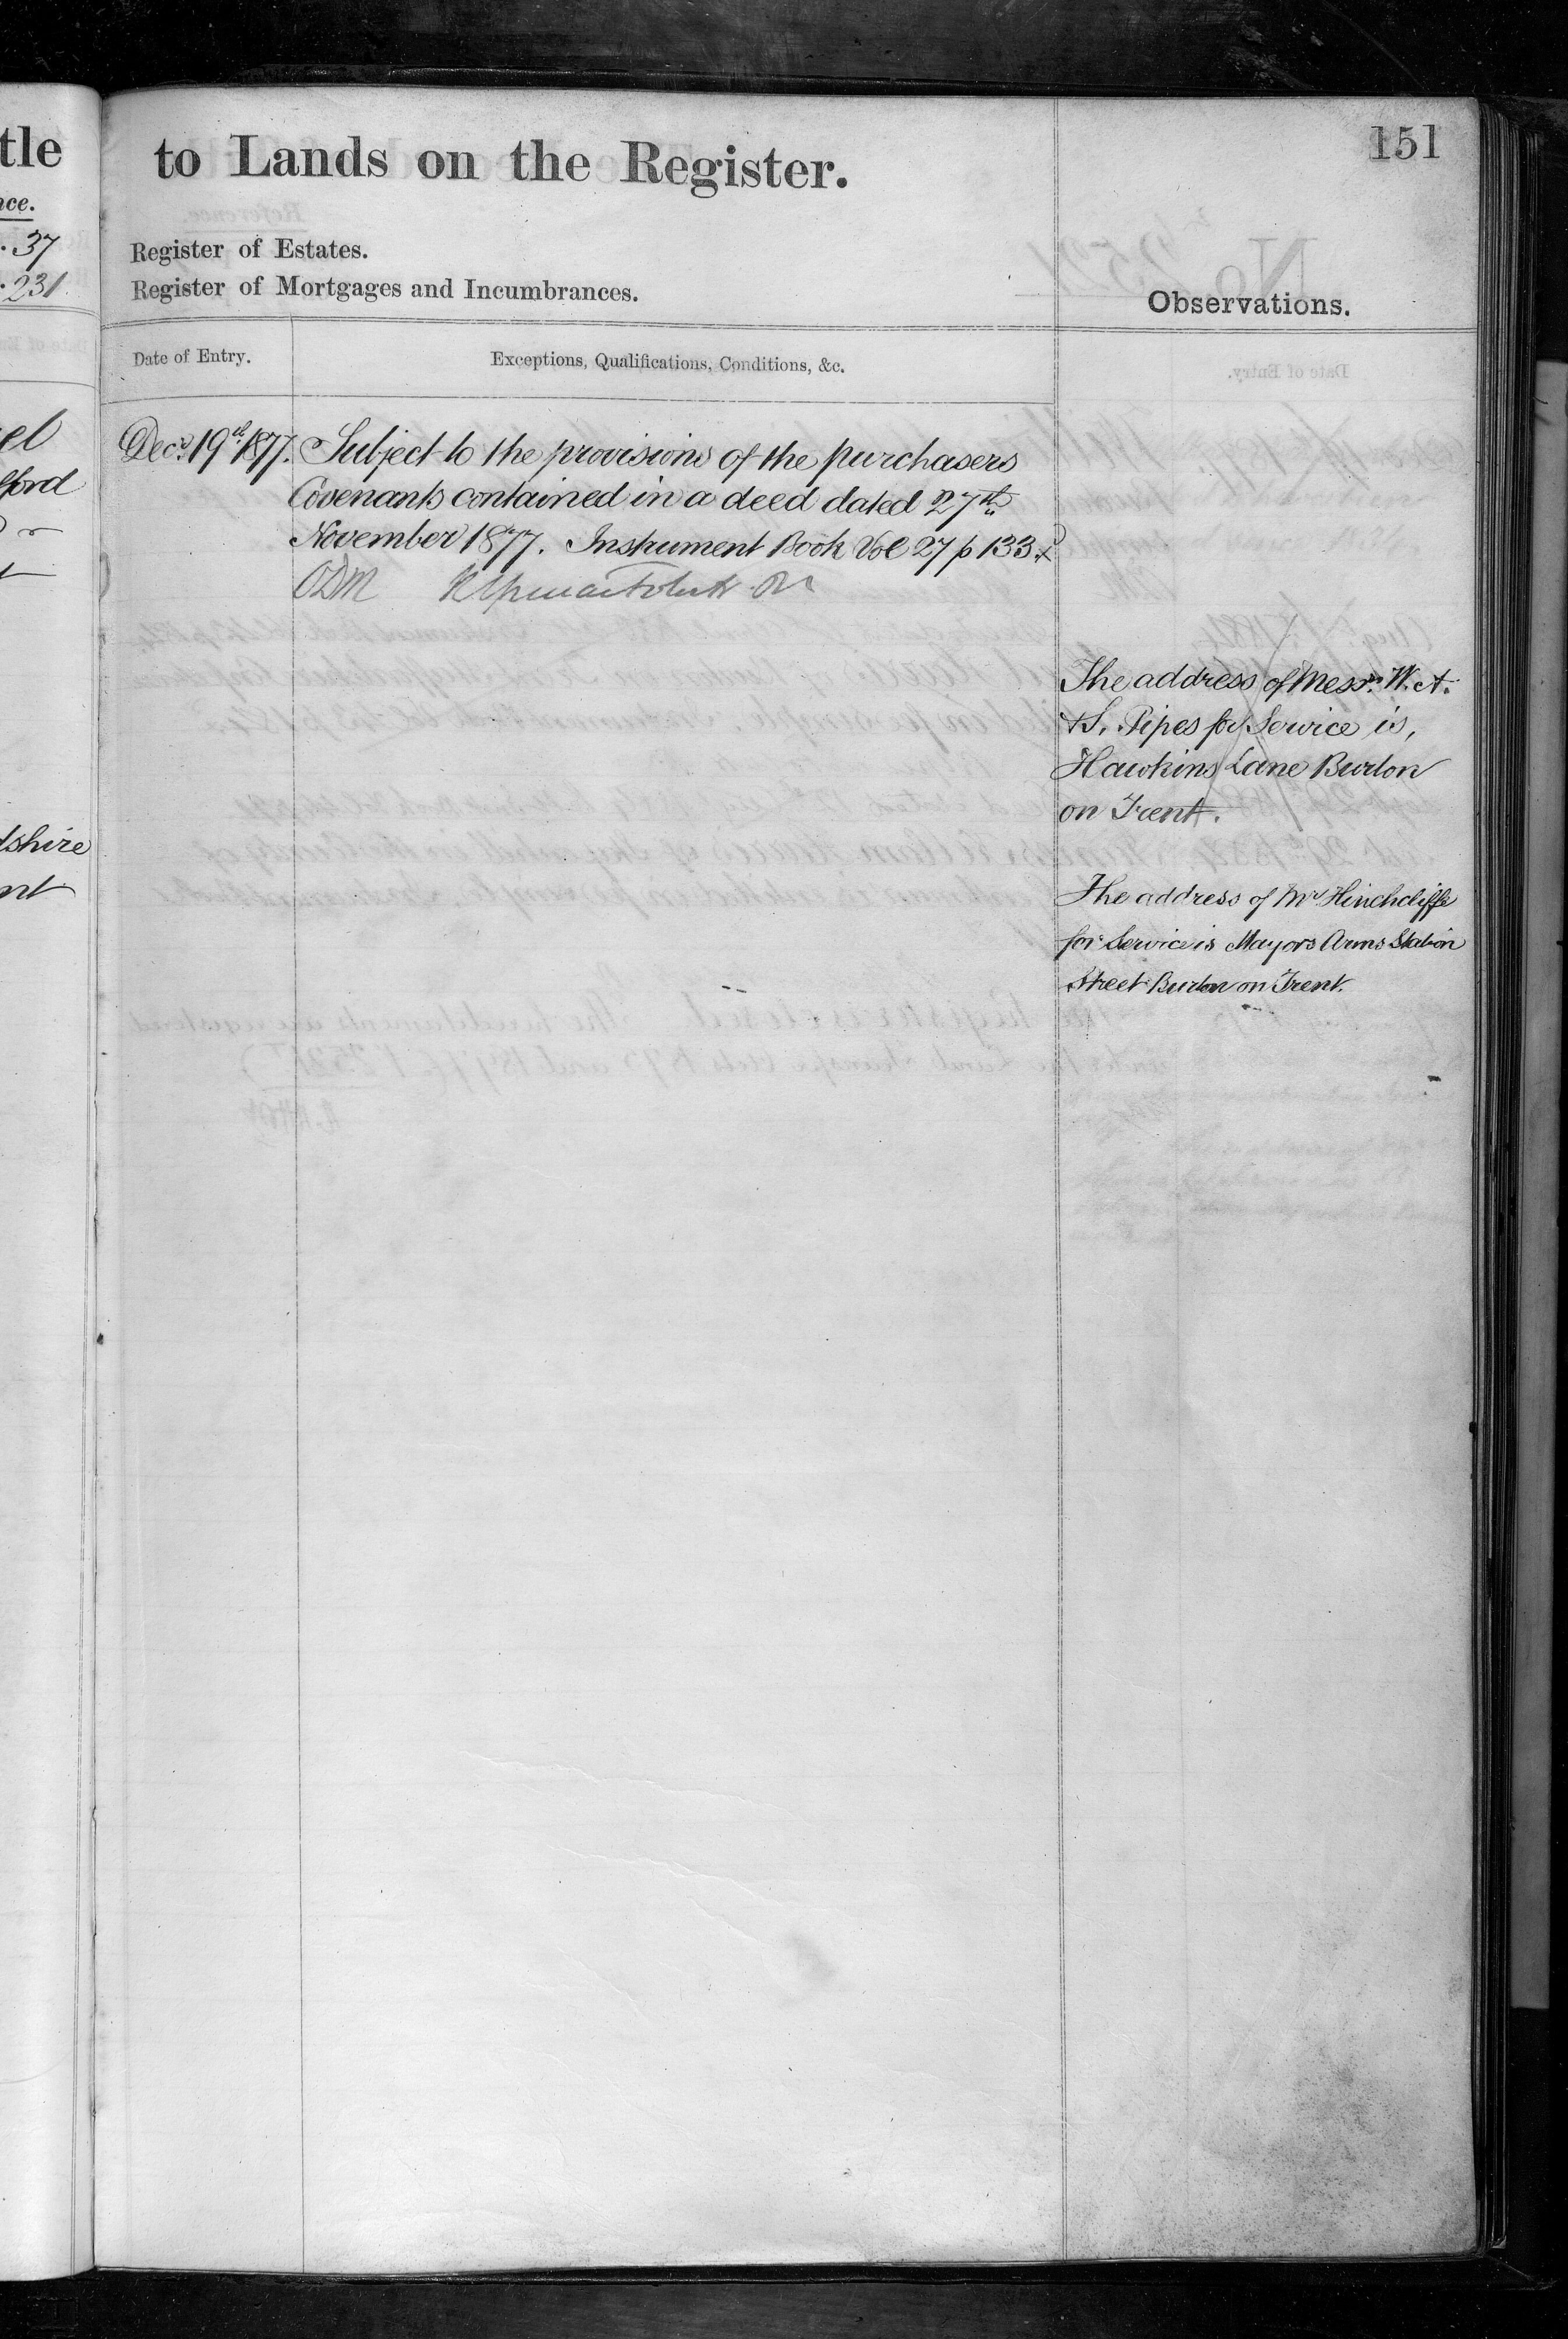 tle
nce.
. 37
. 231.
el
fford
dshire
nt
to Lands on the Register.
151
Register of Estates.
Register of Mortgages and Incumbrances.
Observations.
Date of Entry.
Exceptions, Qualifications, Conditions, &c.
Decr. 19th. 1877. Subject to the provisions of the purchasers
Covenants contained in a deed dated 27th.
November 1877. Instrument Book Vol 27 p 133.
ODM
The address of Messrs. W. A.
& S. Pipes for Service is,
Hawkins Lane Burton
on Trent.
The address of Mr Hinchcliffe
for Service is Mayors Arms Station
Street Burton on Trent.